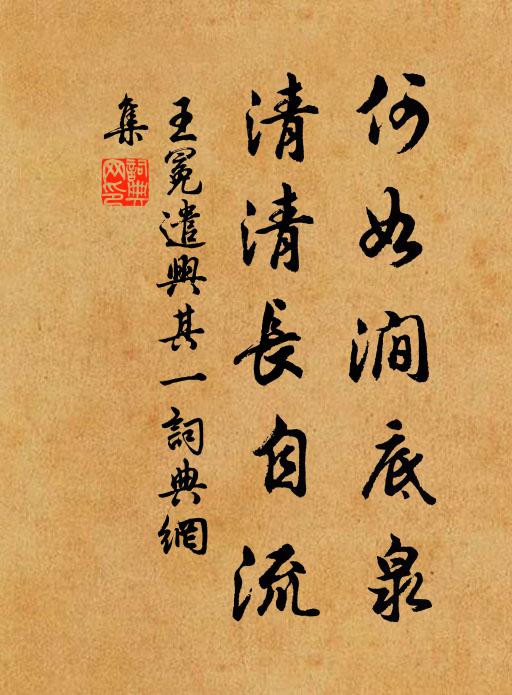 何如澗底泉
清清長自流
王冕遣興其一詞典網
集
詞典
网印